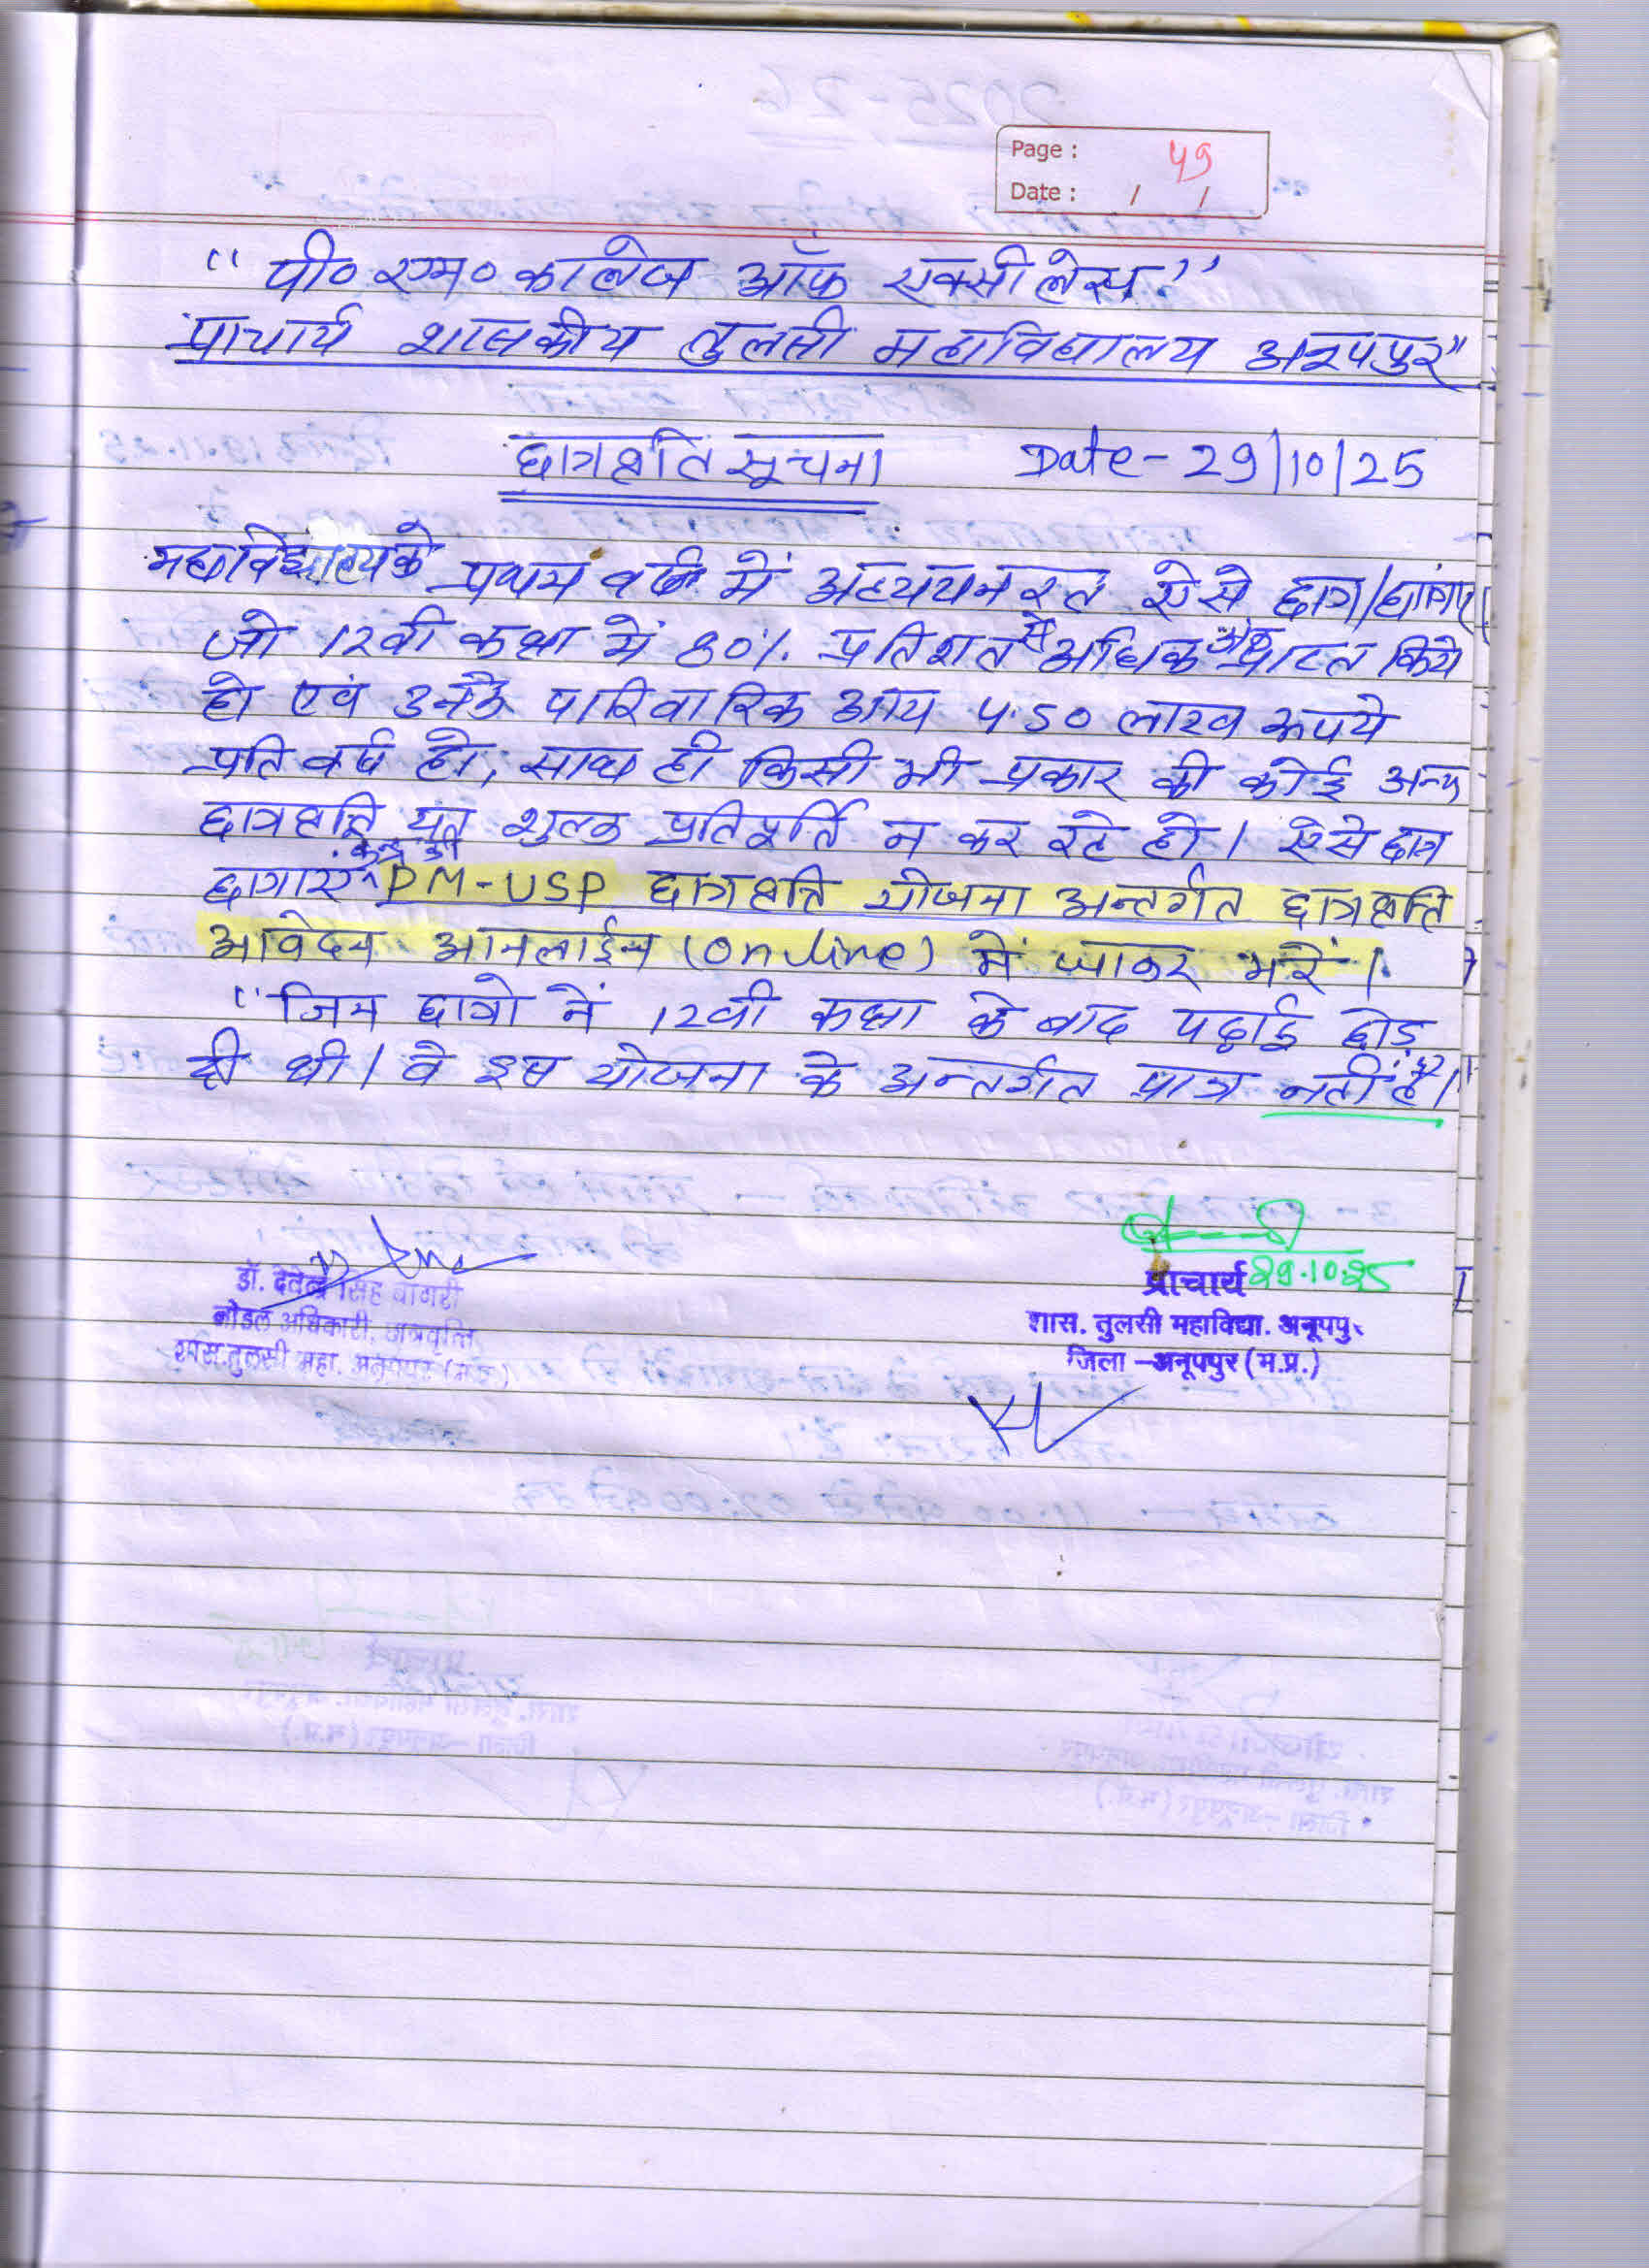 Page : 49
Date : / /
“ पी० एम० कालेज ऑफ एक्सीलेन्स ’’
प्राचार्य शासकीय तुलसी महाविद्यालय अनूपपुर"
छात्रवृत्ति सूचना Date- 29/10/25
महाविद्यालय के प्रथम वर्ष में अध्ययनरत ऐसे छात्र/छात्राएं
जो 12वी कक्षा में 80% प्रतिशत से अधिक अंक प्राप्त किये
हो एवं उनके पारिवारिक आय 4.50 लाख रूपये
प्रति वर्ष हो, साथ ही किसी भी प्रकार की कोई अन्य
छात्रवृत्ति शुल्क प्रतिपूर्ति न कर रहे हो। ऐसे छात्र
छात्राएं केन्द्र की PM-USP छात्रवृत्ति योजना अन्तर्गत छात्रवृत्ति
आवेदन आनलाईन (online) में जाकर भरें।
“जिन छात्रो नें 12वी कक्षा के बाद पढ़ाई छोड़
दी थी। वे इस योजना के अन्तर्गत पात्र नही है।"
29.10.25
प्राचार्य
शास. तुलसी महाविद्या. अनूपपुर
जिला –अनूपपुर (म.प्र.)
डॉ. देवेन्द्र सिंह बागरी
नोडल अधिकारी, छात्रवृत्ति
शास. तुलसी महा. अनूपपुर (म.प्र.)